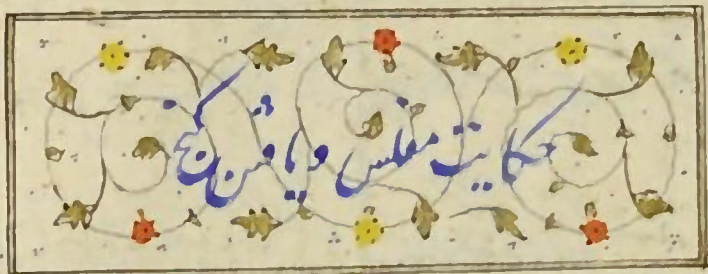 حکایت مفلس و یافتن گنج